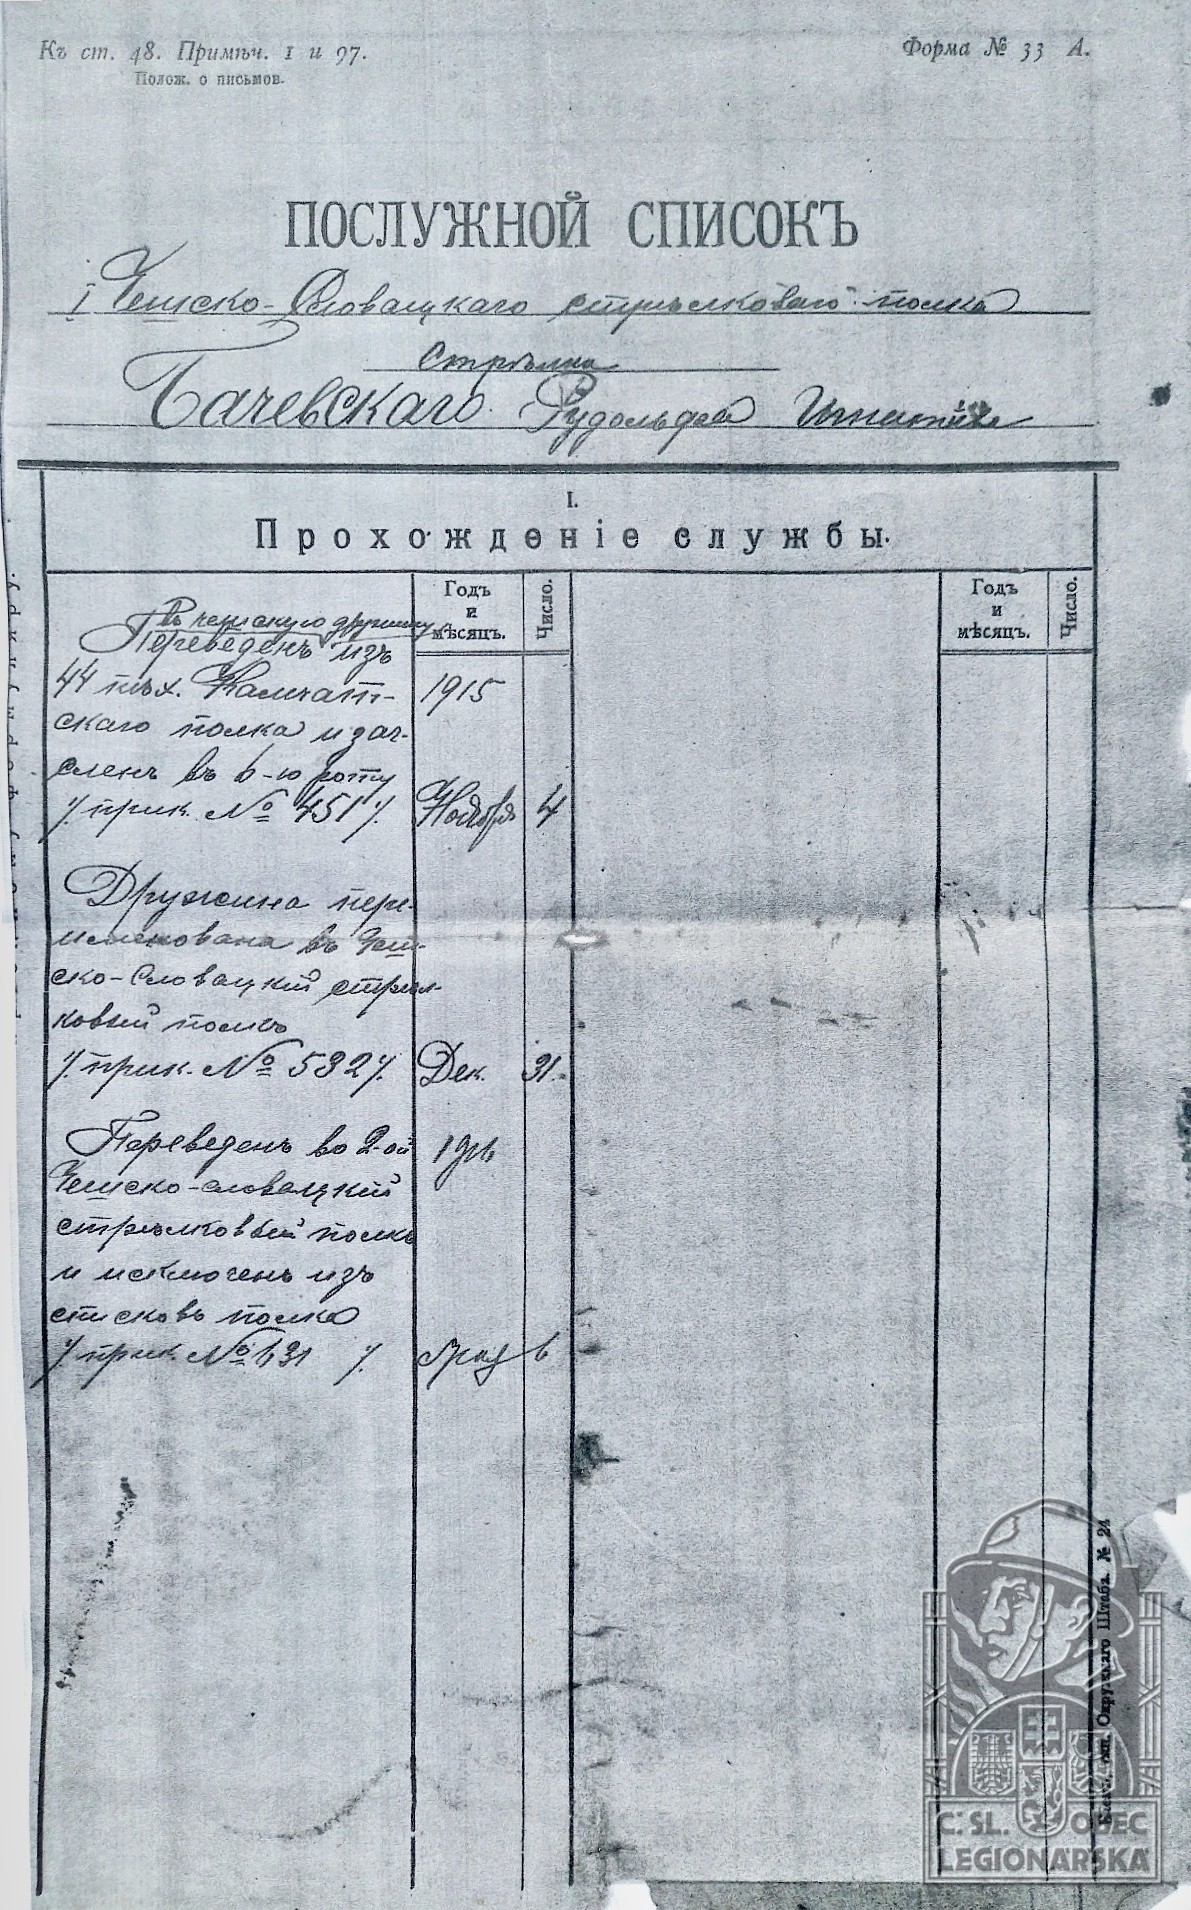 Къ ст. 48. Примѣч. 1 и 97.
Полож. о письмов.
Форма № 33 А.
ПОСЛУЖНОЙ СПИСОКЪ
I Чешско-Словацкаго стрѣлковаго полка
Стрѣлка
Бачевскаго Рудольфа
I.
Прохожденіе службы.
Годъ и мѣсяцъ.
Число.
Годъ и мѣсяцъ.
Число.
въ чешскую дружину
Переведенъ изъ
44 пѣх. Камчат-
скаго полка и зач-
сленъ въ 6-ю роту
/. прик. № 451 /. Ноября 4
1915
Дружина пере-
именована въ Чеш-
ско-Словацкій стрѣл-
ковый полкъ
/. прик. № 532 /. Дек. 31.
Переведенъ во 2-ой
Чешско-словацкій
стрѣлковый полкъ
и исключенъ изъ
списковъ полка
/. прик. № 131 /. 6
Окружнаго Штаба. № 24
Č. SL. OBEC
LEGIONÁŘSKÁ